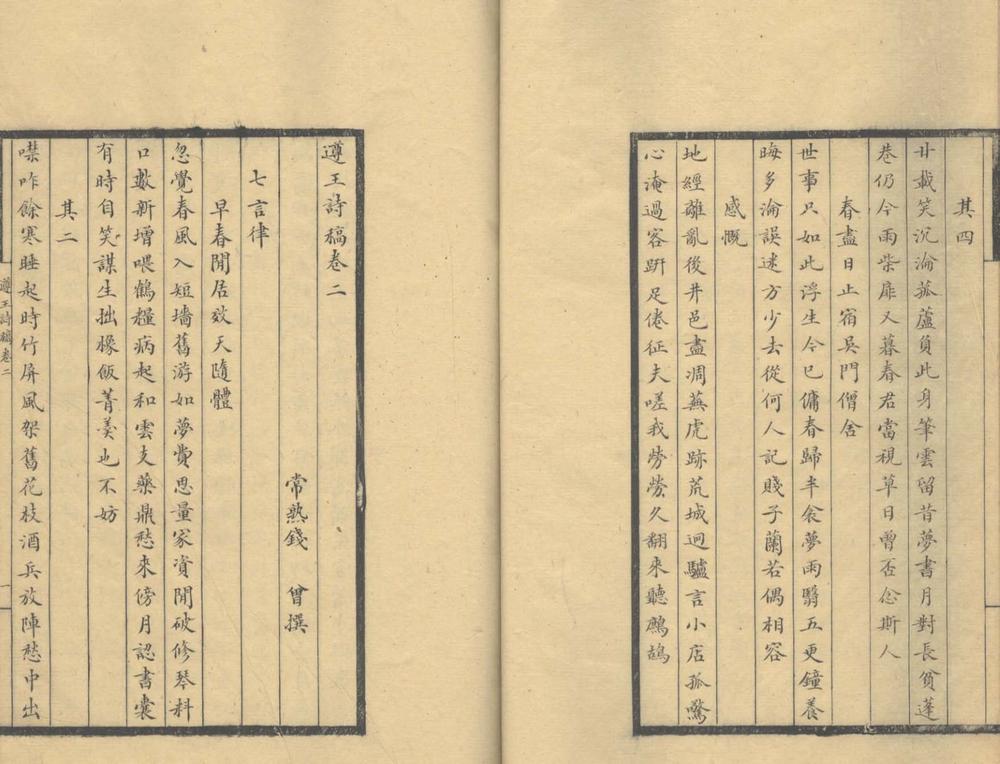 其四
廿載笑沉淪菰蘆負此身筆雲留昔夢書月對長貧蓬
巷仍今雨柴扉又暮春君當視草日曾否念斯人
春盡日止宿吳門僧舍
世事只如此浮生今已傭春歸半衾夢雨翳五更鐘養
晦多淪誤迷方少去從何人記賤子蘭若偶相容
感慨
地經離亂後井邑盡凋蕪虎跡荒城迥驢言小店孤驚
心淹過客趼足倦征夫嗟我勞勞久翻來聽鷓鴣
遵王詩稿卷二
常熟錢　曾撰
七言律
早春閒居效天隨體
忽覺春風入短墻舊游如夢費思量家資閒破修琴料
口數新增喂鶴糧病起和雲支藥鼎愁來傍月認書囊
有時自笑謀生拙橡飯菁羹也不妨
其二
噤咋餘寒睡起時竹屏風架舊花枝酒兵放陣愁中出
遵王詩稿卷二
一